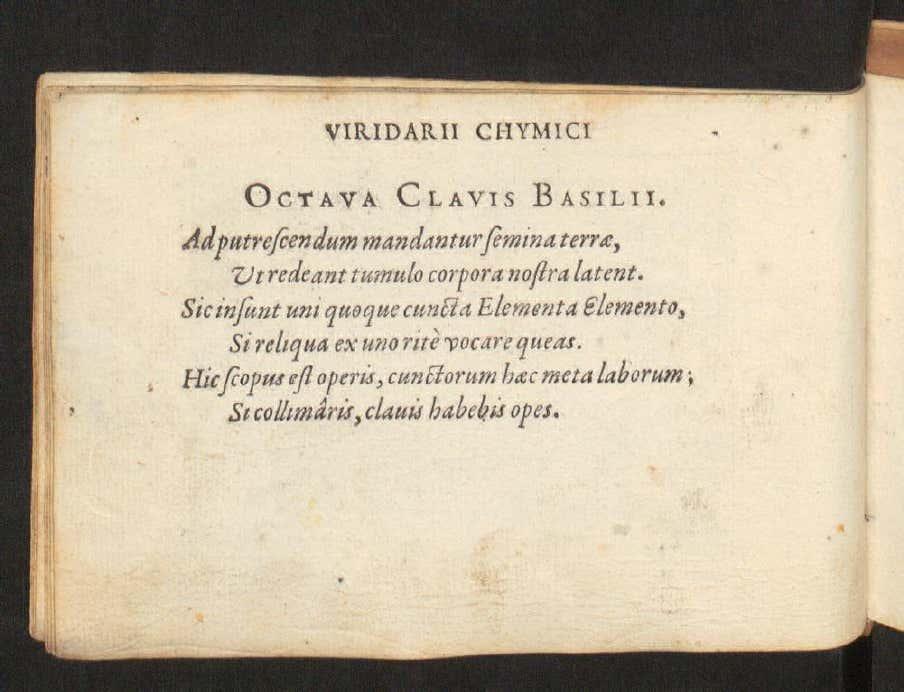 VIRIDARII CHYMICI
OCTAVA CLAVIS BASILII.
Ad putreſcendum mandantur ſemina terræ,
Ut redeant tumulo corpora noſtra latent.
Sic inſunt uni quoque cuncta Elementa Elemento,
Si reliqua ex uno ritè vocare queas.
Hic ſcopus eſt operis, cunctorum hæc meta laborum;
Si collimâris, clauis habebis opes.